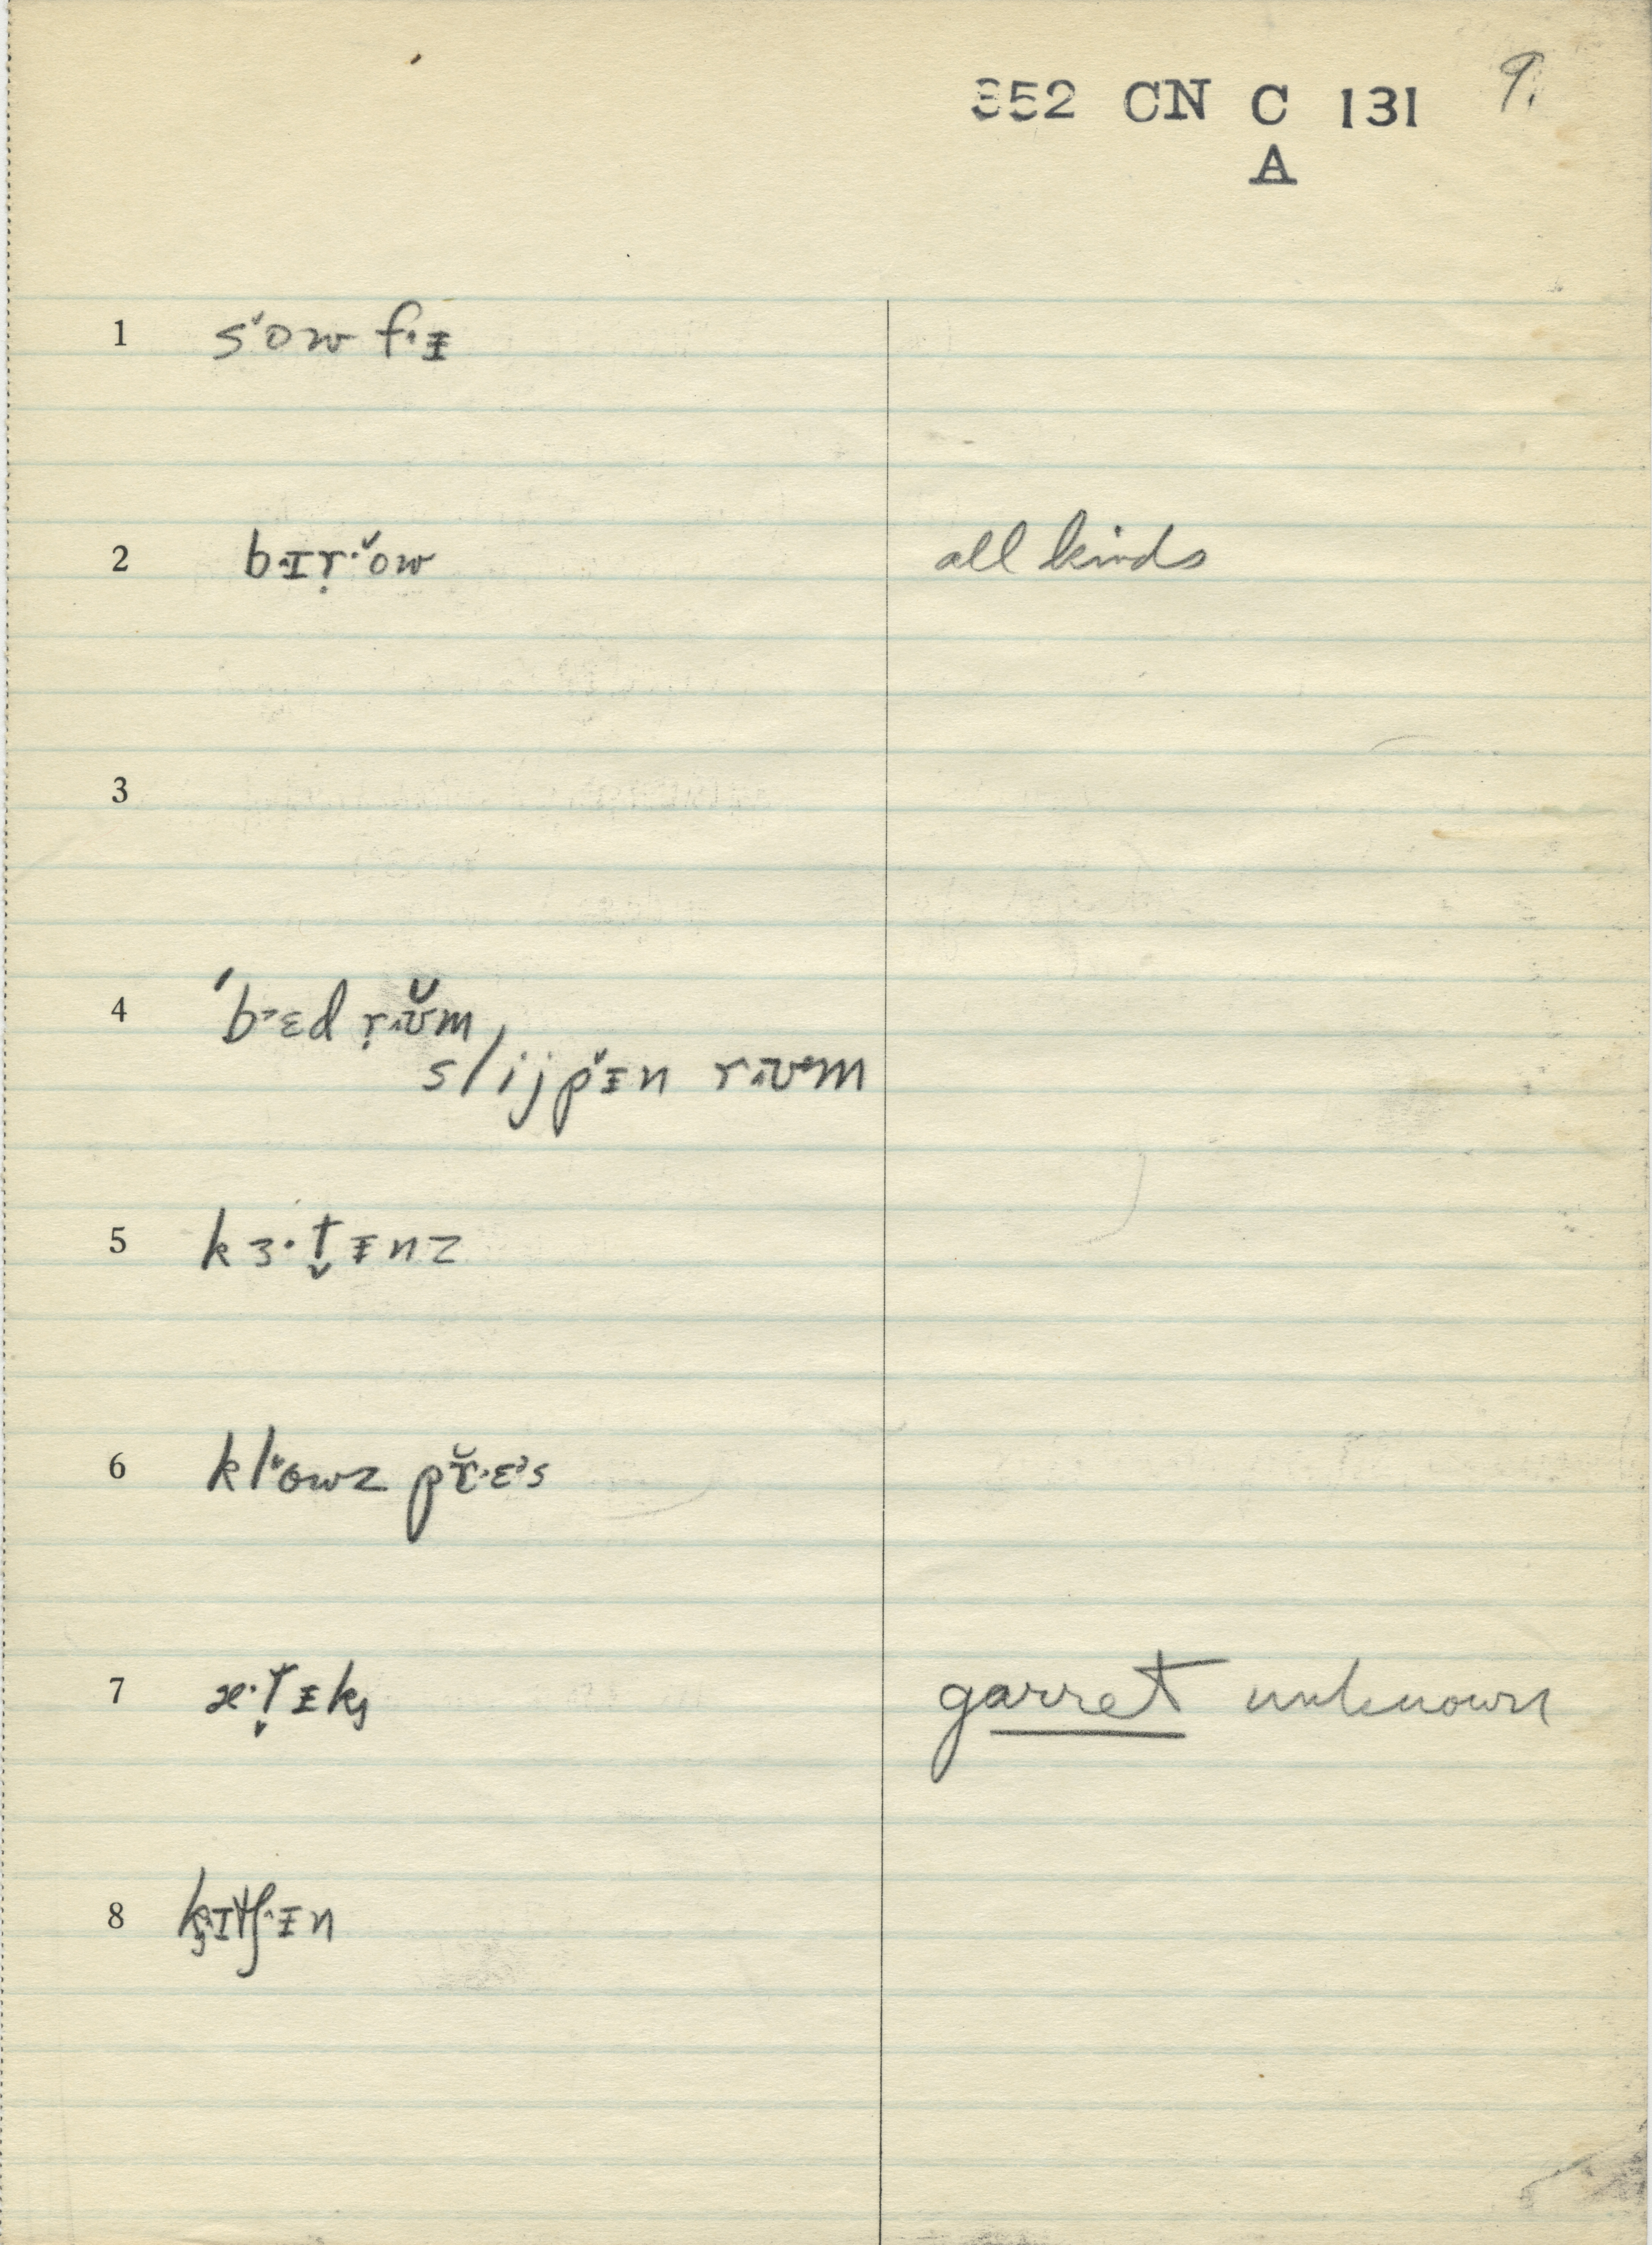 352 CN C 131 9.
A
1 s˅ow fᵻ
2 bɪṛ˅ow all kinds
3
4 ˈbɛd ṛʊm,
slijpᵻn rʊm
5 kɜ·t̬ᵻnz
6 klowz pr̆ɛs
7 æ·t̬ᵻk garret unknown
8 kɪtʃᵻn